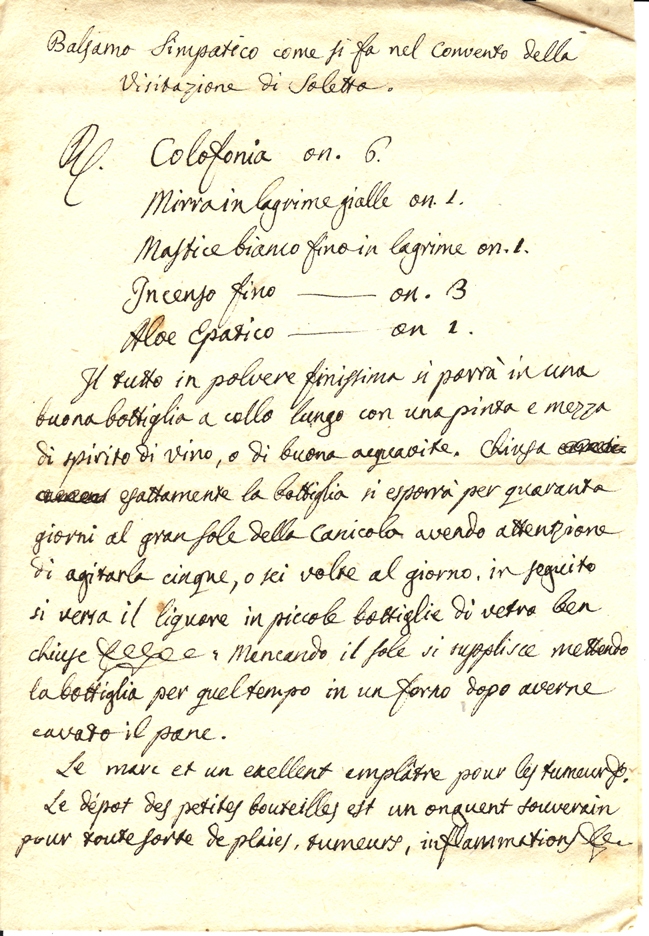 Balsamo Simpatico come si fa nel Convento della
Visitazione di Soletta.
R. Colofonia on. 6.
Mirra in lagrime gialle on. 1.
Mastice bianco fino in lagrime on. 1.
Incenso fino —— on. 3
Aloe Epatico —— on 1.
Il tutto in polvere finissima si porrà in una
buona bottiglia a collo lungo con una pinta e mezza
di spirito di vino, o di buona acquavite. Chiusa
esattamente la bottiglia si esporrà per quaranta
giorni al gran sole della Canicola avendo attenzione
di agitarla cinque, o sei volte al giorno. in seguito
si versa il liquore in piccole bottiglie di vetro ben
chiuse : Mancando il sole si supplisce mettendo
la bottiglia per quel tempo in un forno dopo averne
cavato il pane.
Le marc et un exellent emplâtre pour les tumeurs.
Le dépot des petites bouteilles est un onguent souverain
pour toute sorte de plaies, tumeurs, inflammations